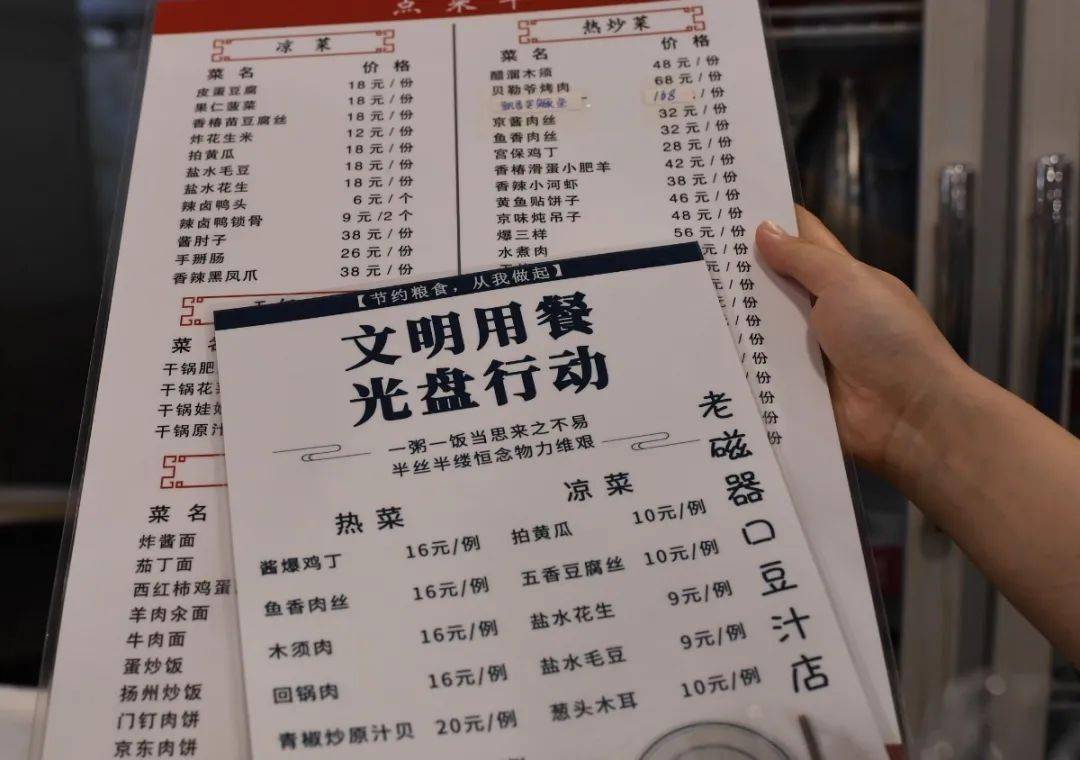 点菜单
凉菜
菜名 价格
皮蛋豆腐 18元/份
果仁菠菜 18元/份
香椿苗豆腐丝 18元/份
炸花生米 12元/份
拍黄瓜 18元/份
盐水毛豆 18元/份
盐水花生 18元/份
辣卤鸭头 6元/个
辣卤鸭锁骨 9元/2个
酱肘子 38元/份
手掰肠 26元/份
香辣黑凤爪 38元/份
菜名
干锅肥
干锅花
干锅娃娃
干锅原汁
菜名
炸酱面
茄丁面
西红柿鸡蛋
羊肉汆面
牛肉面
蛋炒饭
扬州炒饭
门钉肉饼
京东肉饼
热炒菜
菜名 价格
醋溜木须 48元/份
贝勒爷烤肉 68元/份
168 /份
京酱肉丝 32元/份
鱼香肉丝 32元/份
宫保鸡丁 28元/份
香椿滑蛋小肥羊 42元/份
香辣小河虾 38元/份
黄鱼贴饼子 46元/份
京味炖吊子 48元/份
爆三样 56元/份
水煮肉 元/份
元/份
元/份
元/份
/份
/份
/份
/份
份
份
【节约粮食，从我做起】
文明用餐
光盘行动
一粥一饭当思来之不易
半丝半缕恒念物力维艰
热菜
酱爆鸡丁 16元/例
鱼香肉丝 16元/例
木须肉 16元/例
回锅肉 16元/例
青椒炒原汁贝 20元/例
凉菜
拍黄瓜 10元/例
五香豆腐丝 10元/例
盐水花生 9元/例
盐水毛豆 9元/例
葱头木耳 10元/例
老磁器口豆汁店